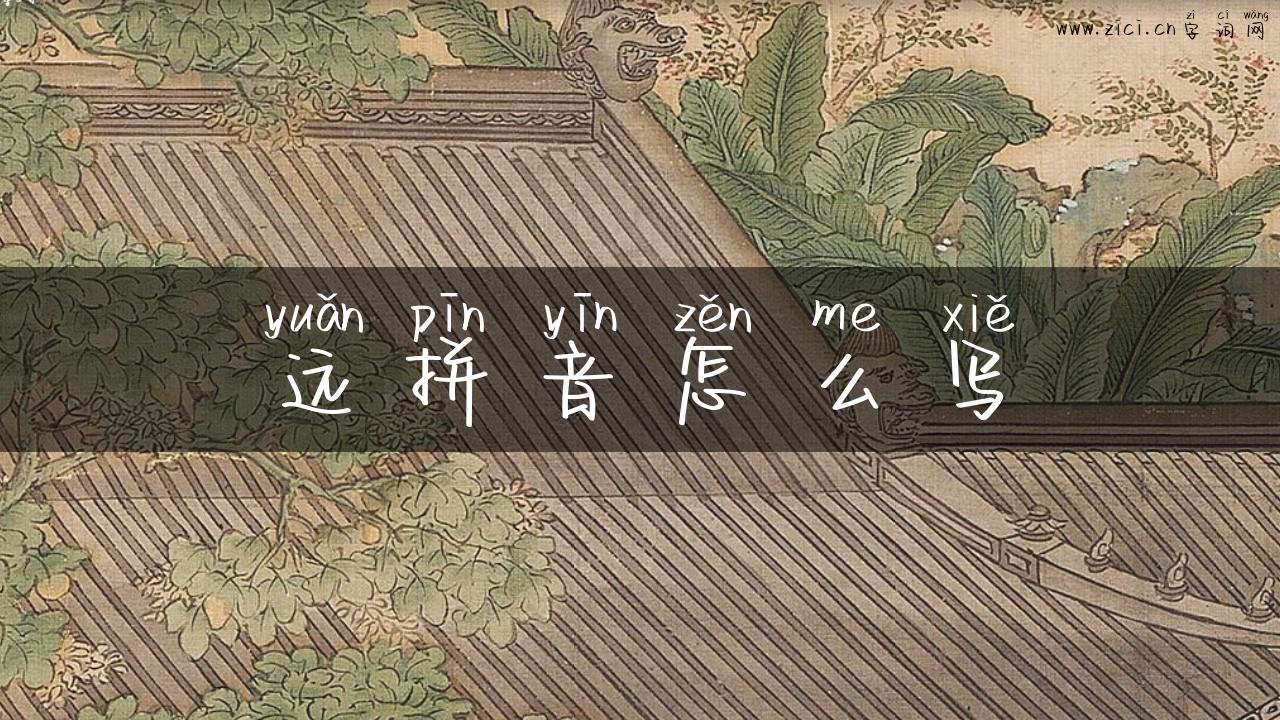 zì cí wǎng
www.zici.cn 字词网
yuǎn pīn yīn zěn me xiě
远拼音怎么写